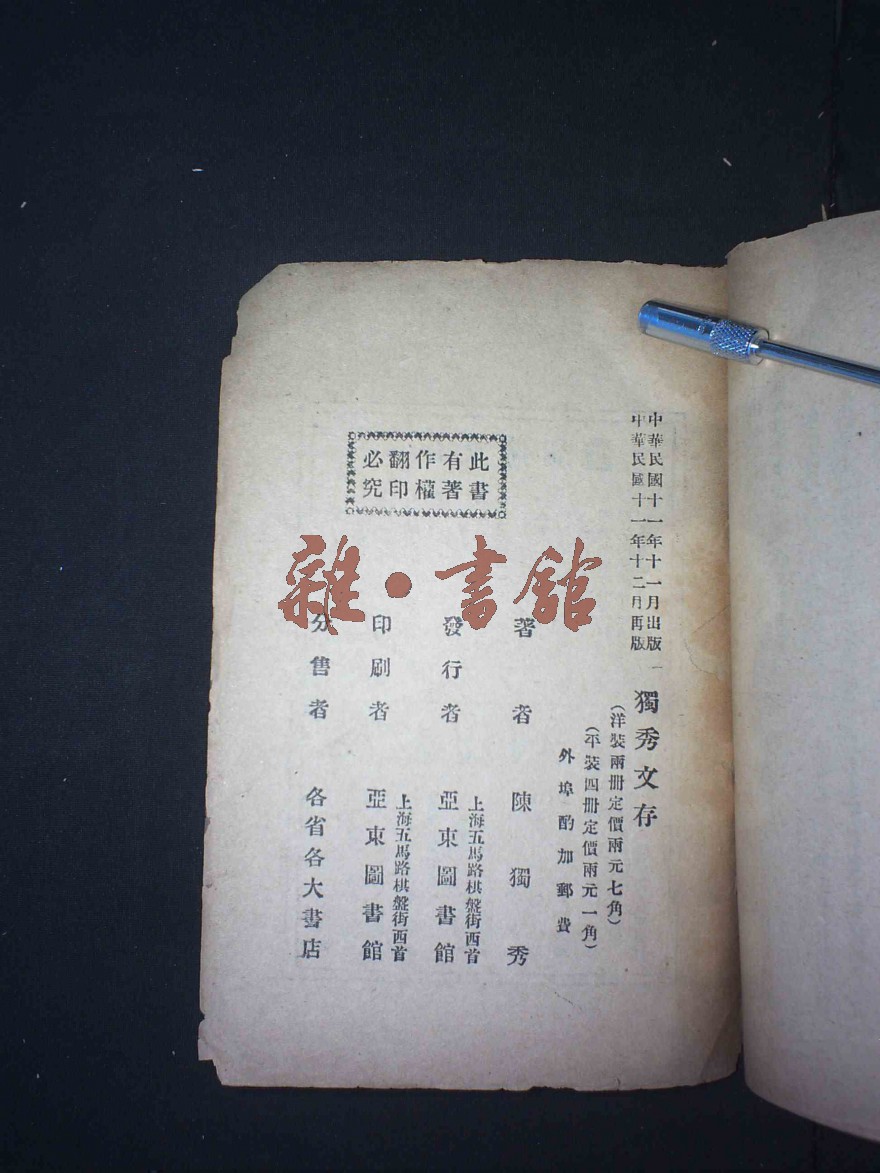 中華民國十一年十一月出版
中華民國十一年十二月再版
獨秀文存
(洋裝兩册定價兩元七角)
(平裝四册定價兩元一角)
外埠酌加郵費
著者 陳獨秀
上海五馬路棋盤街西首
發行者 亞東圖書館
上海五馬路棋盤街西首
印刷者 亞東圖書館
分售者 各省各大書店
此書
有著
作權
翻印
必究
雜·書館